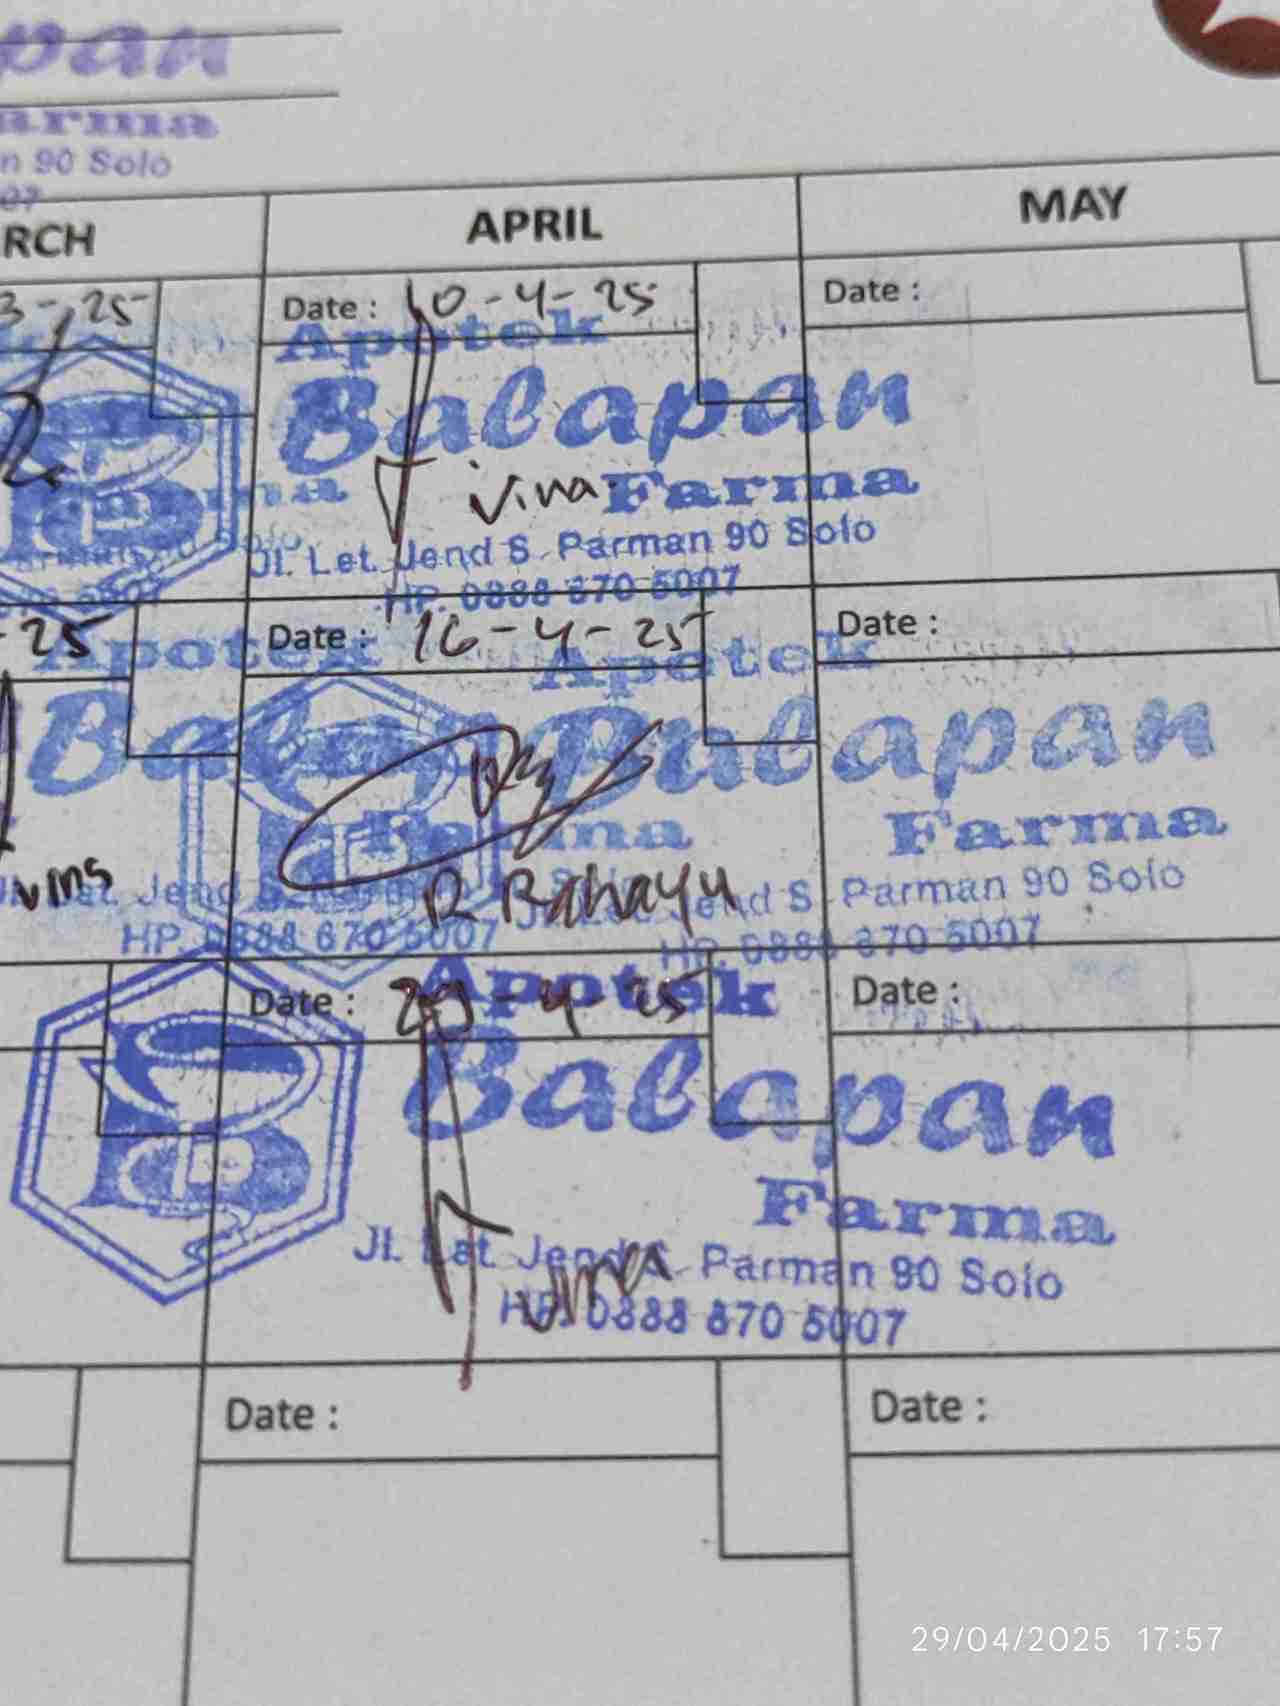 pan
arma
n 90 Solo
07
RCH
APRIL
MAY
3-25
Date : 10-4-25
Date :
Apotek
Balapan
Vina Farma
Jl. Let. Jend S. Parman 90 Solo
HP. 0888 670 5007
25
Date : 16-4-25
Date :
Apotek
Apotek
Balapan
Farma
R Rahayu
Jend S. Parman 90 Solo
HP. 0888 670 5007
HP. 0888 670 5007
Date : 29-4-25
Date :
Apotek
Balapan
Farma
Jl. Let. Jend S. Parman 90 Solo
HP. 0888 670 5007
Date :
Date :
29/04/2025 17:57